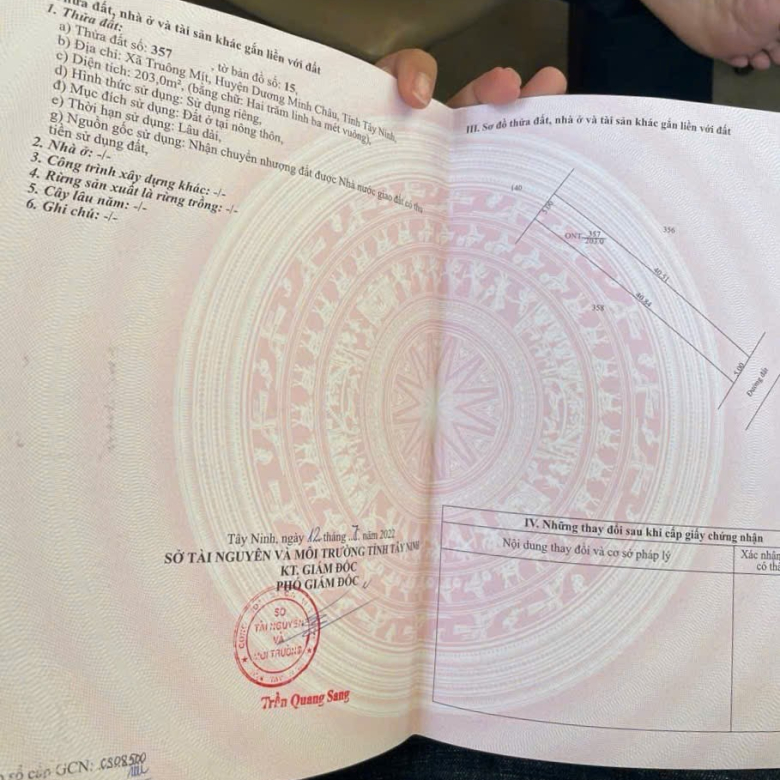 đất, nhà ở và tài sản khác gắn liền với đất
1. Thửa đất:
a) Thửa đất số: 357 , tờ bản đồ số: 15,
b) Địa chỉ: Xã Truông Mít, Huyện Dương Minh Châu, Tỉnh Tây Ninh,
c) Diện tích: 203,0m², (bằng chữ: Hai trăm linh ba mét vuông),
d) Hình thức sử dụng: Sử dụng riêng,
đ) Mục đích sử dụng: Đất ở tại nông thôn,
e) Thời hạn sử dụng: Lâu dài,
g) Nguồn gốc sử dụng: Nhận chuyển nhượng đất được Nhà nước giao đất có thu
tiền sử dụng đất,
2. Nhà ở: -/-
3. Công trình xây dựng khác: -/-
4. Rừng sản xuất là rừng trồng: -/-
5. Cây lâu năm: -/-
6. Ghi chú: -/-
Tây Ninh, ngày 12 tháng 7 năm 2022
SỞ TÀI NGUYÊN VÀ MÔI TRƯỜNG TỈNH TÂY NINH
KT. GIÁM ĐỐC
PHÓ GIÁM ĐỐC
SỞ
TÀI NGUYÊN
VÀ
MÔI TRƯỜNG
Trần Quang Sang
số cấp GCN:
III. Sơ đồ thửa đất, nhà ở và tài sản khác gắn liền với đất
140
5.00
356
ONT 357
203.0
40.51
40.84
358
5.00
Đường đỏ
IV. Những thay đổi sau khi cấp giấy chứng nhận
Nội dung thay đổi và cơ sở pháp lý
Xác nhận
có